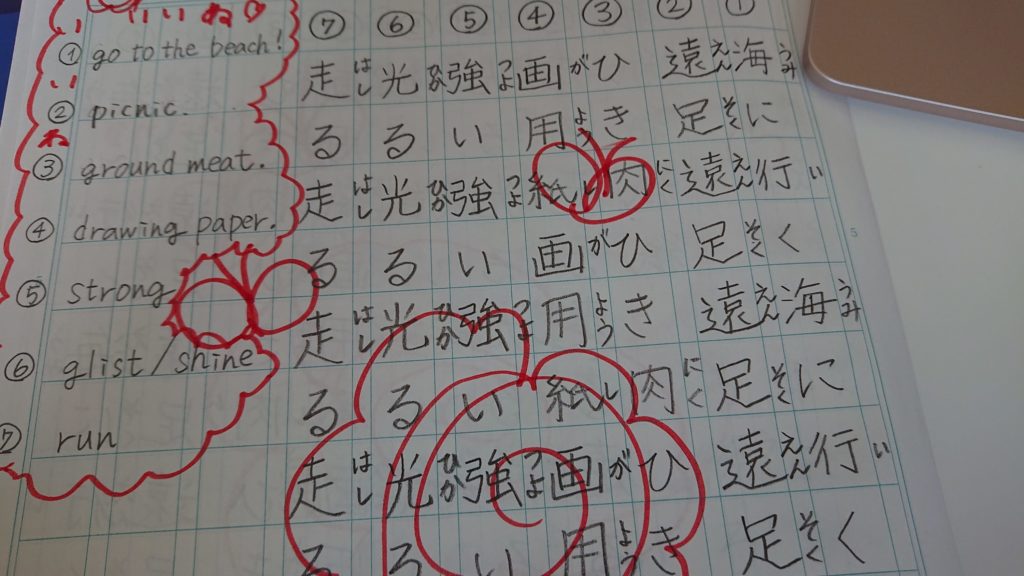 ①
海うみに行いく海うみに行いく
②
遠えん足そく遠えん足そく遠えん足そく遠えん足そく
③
ひき肉にくひき肉にくひき
④
画が用よう紙し画が用よう紙し画が用よう
⑤
強つよい強つよい強つよい強つよい
⑥
光ひかる光ひかる光ひかる光ひかる
⑦
走はしる走はしる走はしる走はしる
いいね
いいね
① go to the beach!
② picnic.
③ ground meat.
④ drawing paper.
⑤ strong
⑥ glist/shine
⑦ run